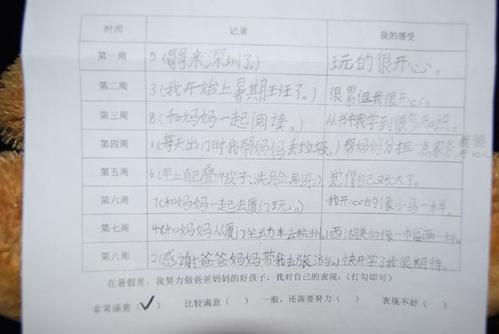 时间 记录 我的感受
第一周 5(来深圳了) 玩的很开心。
第二周 3(我开始上暑期班了。) 很累但我很开心。
第三周 8(和妈妈一起阅读。) 从书中我学到很多知识。
第四周 1(每天出门时我帮妈妈丢垃圾。) 帮妈妈分担一点家务
第五周 6(早上自己叠被子、洗脸、刷牙。) 觉得自己长大了。
第六周 7(和妈妈一起去厦门玩。) 我开心的像小马一样。
第七周 4(和妈妈从厦门坐动车去杭州。) 西湖美的像一中画一样。
第八周 2(感谢爸爸妈妈带我去旅游。) 快开学了我很期待。
在暑假里,我努力做爸爸妈妈的好孩子,我对自己的表现:(打勾即可)
非常满意(✓) 比较满意( ) 一般,还需要努力( ) 表现不好( )